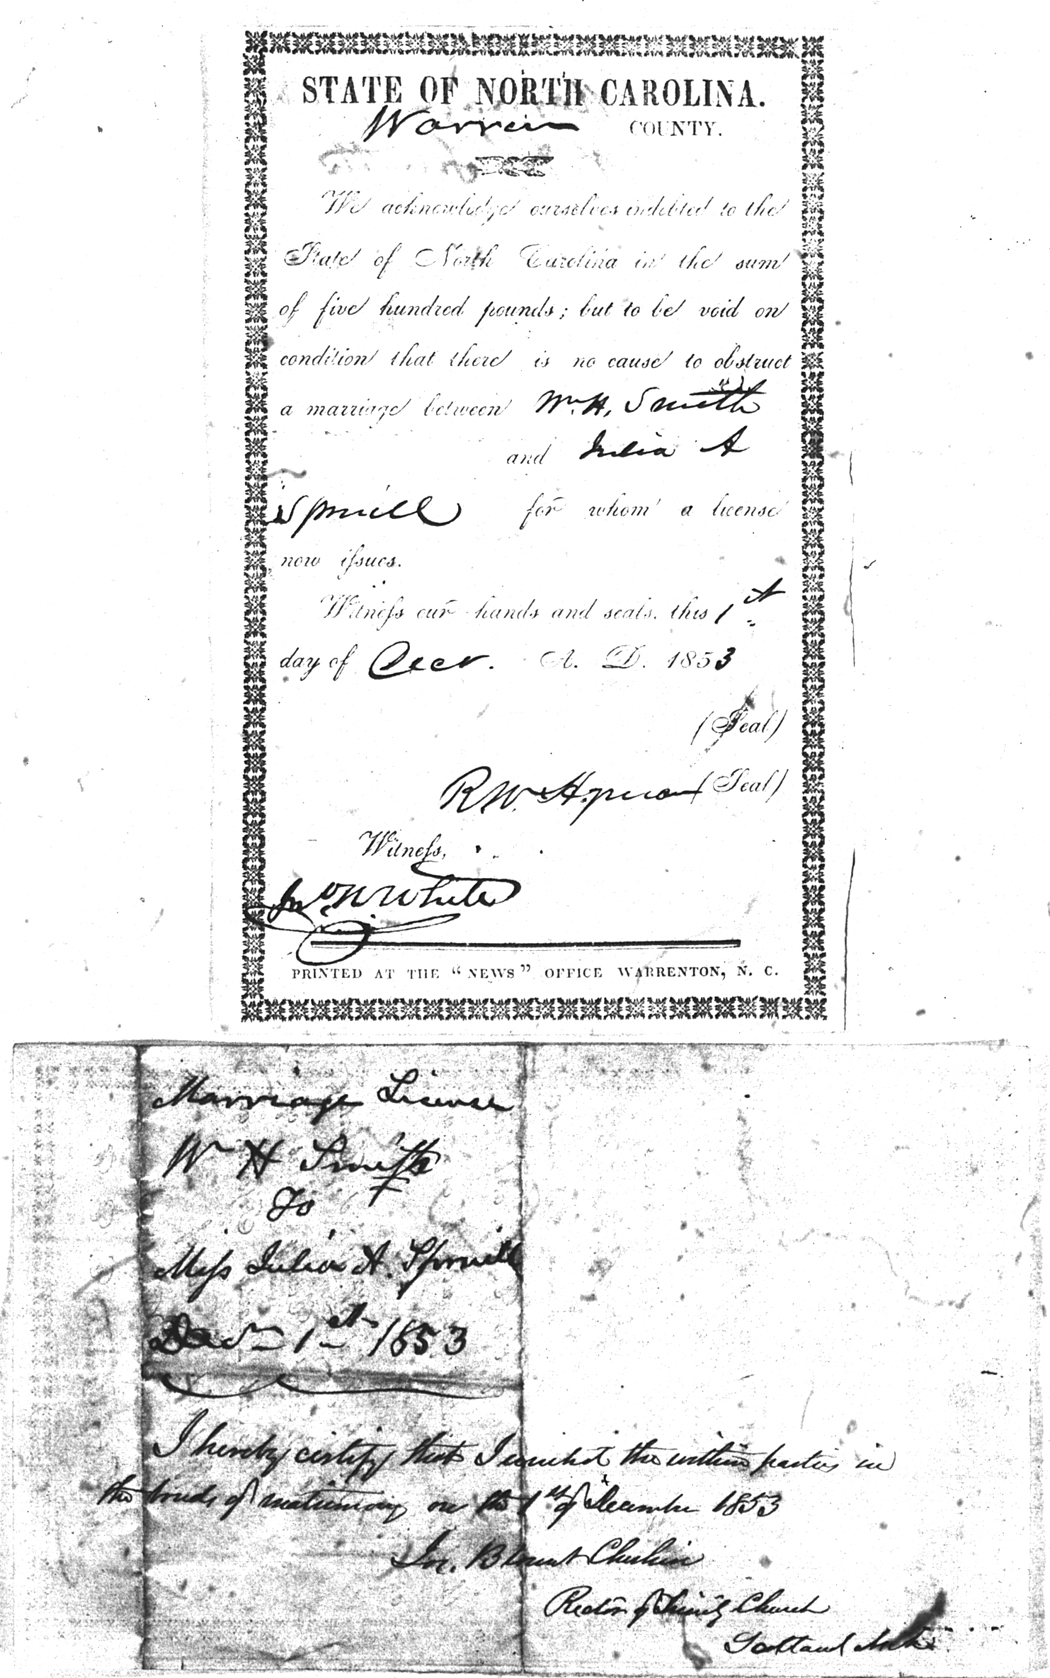 STATE OF NORTH CAROLINA.
Warren COUNTY.
We acknowledge ourselves indebted to the
State of North Carolina in the sum
of five hundred pounds; but to be void on
condition that there is no cause to obstruct
a marriage between Wm. H. Smith
and Julia A
Spruill for whom a license
now issues.
Witness our hands and seals, this 1st
day of Decr. A. D. 1853
(Seal)
R W. Hyman (Seal)
Witness,
Jno W White
PRINTED AT THE "NEWS" OFFICE WARRENTON, N. C.
Marriage License
Wm H Smith
To
Miss Julia A. Spruill
1st 1853
I hereby certify that I united the within parties in
the bonds of matrimony on the 1st of December 1853
Jos. Blount Cheshire
Rector of Trinity Church
Scotland Neck